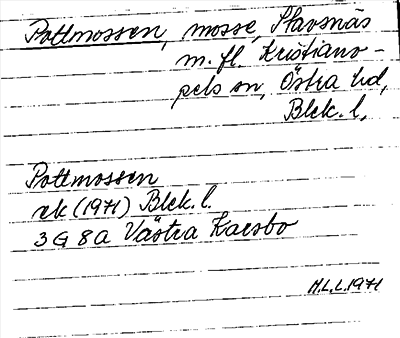 Pottmossen, mosse, Stavsnäs
m. fl. Kristiano-
pels sn, Östra hd,
Blek. l.
Pottmossen
ek (1971) Blek. l.
3 G 8 a Västra Kärsbo
H.L.L. 1971